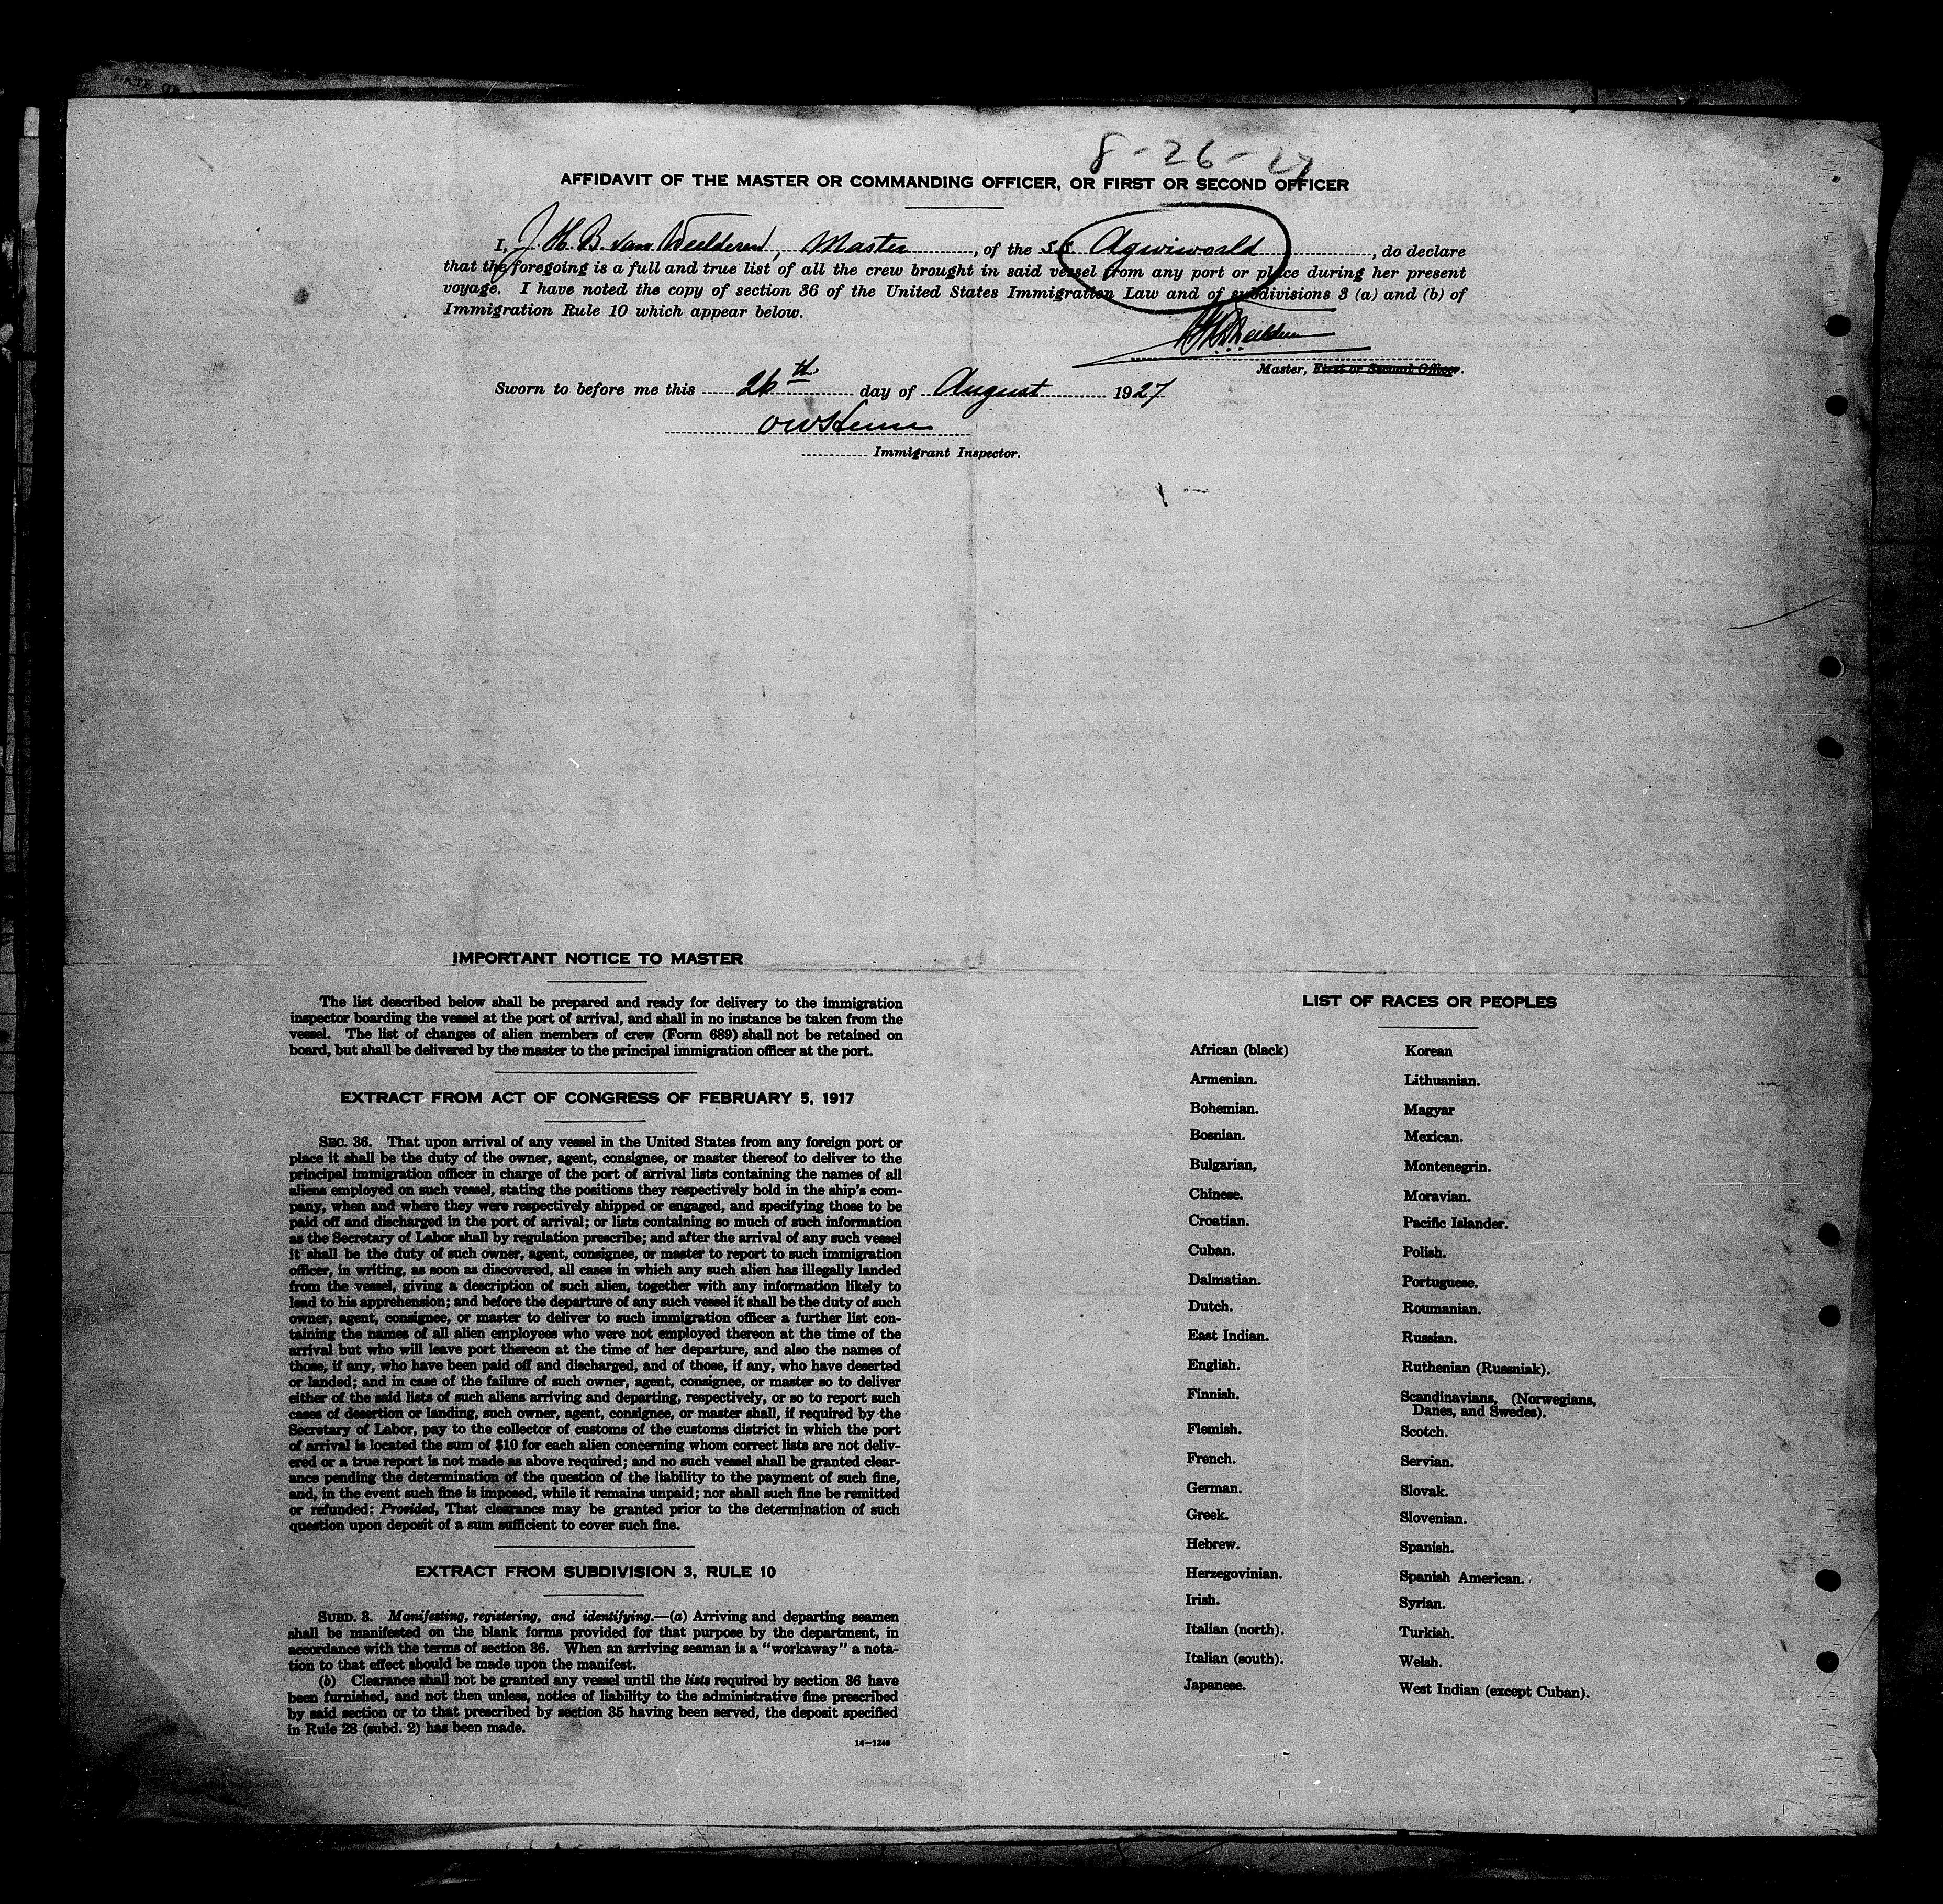 8-26-27
AFFIDAVIT OF THE MASTER OR COMMANDING OFFICER, OR FIRST OR SECOND OFFICER
I, J. H. B. van Weelderen, Master, of the S.S. Agwiworld, do declare
that the foregoing is a full and true list of all the crew brought in said vessel from any port or place during her present
voyage. I have noted the copy of section 36 of the United States Immigration Law and of subdivisions 3 (a) and (b) of
Immigration Rule 10 which appear below.
Master, First or Second Officer.
Sworn to before me this 26th day of August 1927
Immigrant Inspector.
IMPORTANT NOTICE TO MASTER
The list described below shall be prepared and ready for delivery to the immigration
inspector boarding the vessel at the port of arrival, and shall in no instance be taken from the
vessel. The list of changes of alien members of crew (Form 689) shall not be retained on
board, but shall be delivered by the master to the principal immigration officer at the port.
EXTRACT FROM ACT OF CONGRESS OF FEBRUARY 5, 1917
SEC. 36. That upon arrival of any vessel in the United States from any foreign port or
place it shall be the duty of the owner, agent, consignee, or master thereof to deliver to the
principal immigration officer in charge of the port of arrival lists containing the names of all
aliens employed on such vessel, stating the positions they respectively hold in the ship's com-
pany, when and where they were respectively shipped or engaged, and specifying those to be
paid off and discharged in the port of arrival; or lists containing so much of such information
as the Secretary of Labor shall by regulation prescribe; and after the arrival of any such vessel
it shall be the duty of such owner, agent, consignee, or master to report to such immigration
officer, in writing, as soon as discovered, all cases in which any such alien has illegally landed
from the vessel, giving a description of such alien, together with any information likely to
lead to his apprehension; and before the departure of any such vessel it shall be the duty of such
owner, agent, consignee, or master to deliver to such immigration officer a further list con-
taining the names of all alien employees who were not employed thereon at the time of the
arrival but who will leave port thereon at the time of her departure, and also the names of
those, if any, who have been paid off and discharged, and of those, if any, who have deserted
or landed; and in case of the failure of such owner, agent, consignee, or master so to deliver
either of the said lists of such aliens arriving and departing, respectively, or so to report such
cases of desertion or landing, such owner, agent, consignee, or master shall, if required by the
Secretary of Labor, pay to the collector of customs of the customs district in which the port
of arrival is located the sum of $10 for each alien concerning whom correct lists are not deliv-
ered or a true report is not made as above required; and no such vessel shall be granted clear-
ance pending the determination of the question of the liability to the payment of such fine,
and, in the event such fine is imposed, while it remains unpaid; nor shall such fine be remitted
or refunded: Provided, That clearance may be granted prior to the determination of such
question upon deposit of a sum sufficient to cover such fine.
EXTRACT FROM SUBDIVISION 3, RULE 10
SUBD. 3. Manifesting, registering, and identifying.—(a) Arriving and departing seamen
shall be manifested on the blank forms provided for that purpose by the department, in
accordance with the terms of section 36. When an arriving seaman is a "workaway" a nota-
tion to that effect should be made upon the manifest.
(b) Clearance shall not be granted any vessel until the lists required by section 36 have
been furnished, and not then unless, notice of liability to the administrative fine prescribed
by said section or to that prescribed by section 35 having been served, the deposit specified
in Rule 28 (subd. 2) has been made.
14—1240
LIST OF RACES OR PEOPLES
African (black)
Armenian.
Bohemian.
Bosnian.
Bulgarian,
Chinese.
Croatian.
Cuban.
Dalmatian.
Dutch.
East Indian.
English.
Finnish.
Flemish.
French.
German.
Greek.
Hebrew.
Herzegovinian.
Irish.
Italian (north).
Italian (south).
Japanese.
Korean
Lithuanian.
Magyar
Mexican.
Montenegrin.
Moravian.
Pacific Islander.
Polish.
Portuguese.
Roumanian.
Russian.
Ruthenian (Russniak).
Scandinavians, (Norwegians,
Danes, and Swedes).
Scotch.
Servian.
Slovak.
Slovenian.
Spanish.
Spanish American.
Syrian.
Turkish.
Welsh.
West Indian (except Cuban).